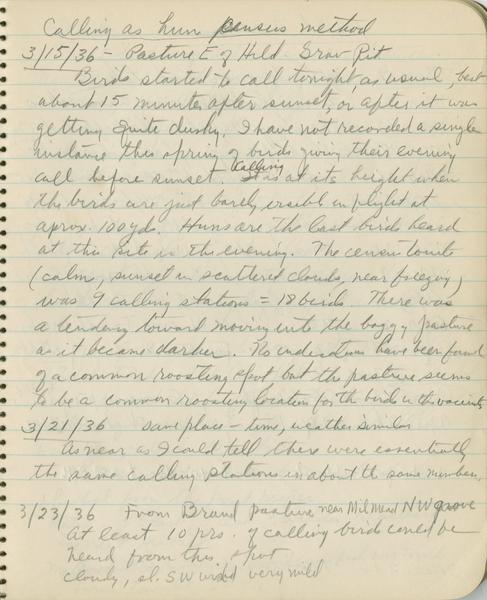 Calling as hun census method
3/15/36 - Pasture E of Hild. Grav Pit
Birds started to call tonight, as usual, but
about 15 minutes after sunset, or after it was
getting quite dusky. I have not recorded a single
instance this spring of birds giving their evening
call before sunset. Calling is at its height when
the birds are just barely visible in flight at
aprox. 100 yds. Huns are the last birds heard
at this site in the evening. The census tonite
(calm, sunset in scattered clouds, near freezing)
was 9 calling stations = 18 birds. There was
a tendency toward moving into the boggy pasture
as it became darker. No indications have been found
of a common roosting spot but the pasture seems
to be a common roosting location for the birds in the vicinity
3/21/36 same place - time, weather similar
As near as I could tell there were essentially
the same calling stations in about the same numbers.
3/23/36 From Brand pasture near Mil. NW grove
At least 10 prs. of calling birds could be
heard from this spot
cloudy, sl. SW wind very mild